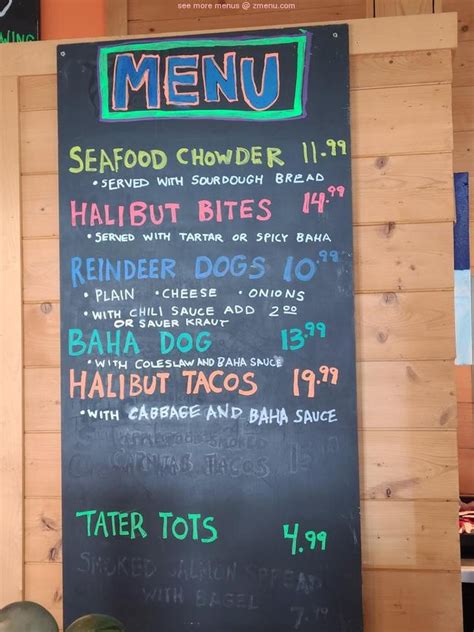 see more menus @ zmenu.com
WING
MENU
SEAFOOD CHOWDER 11.99
• SERVED WITH SOURDOUGH BREAD
HALIBUT BITES 14.99
• SERVED WITH TARTAR OR SPICY BAHA
REINDEER DOGS 10.99
• PLAIN • CHEESE • ONIONS
• WITH CHILI SAUCE ADD 2.00
OR SAUER KRAUT
BAHA DOG 13.99
• WITH COLESLAW AND BAHA SAUCE
HALIBUT TACOS 19.99
• WITH CABBAGE AND BAHA SAUCE
TACOS
TATER TOTS 4.99
SMOKED SALMON SPREAD
WITH BAGEL